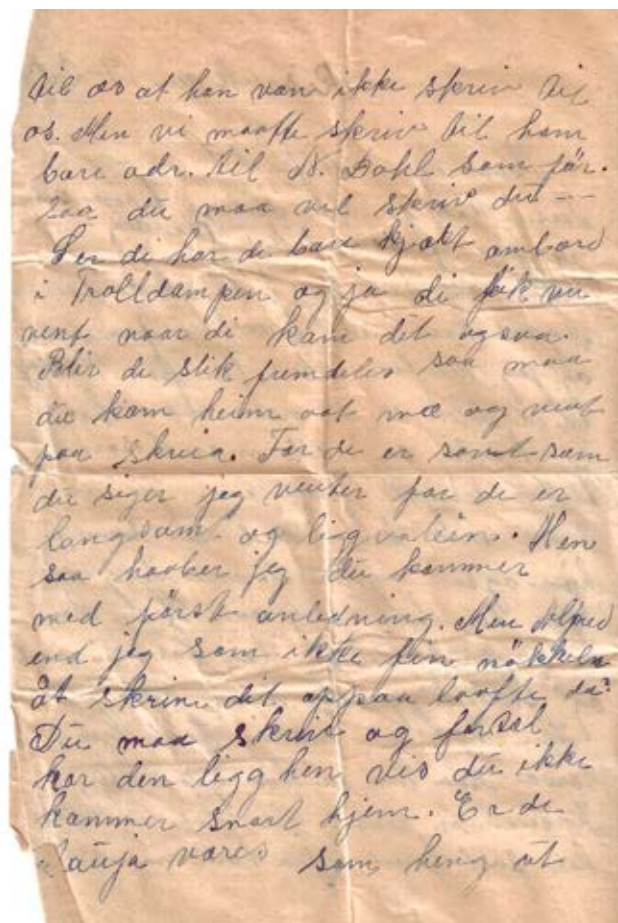 til os at han van ikke skriv til
os. Men vi maatte skriv til ham
bare adr. til N. Dahl som før.
saa du maa vel skriv du —
Ser di har de bare kjøkt ombord
i Trolldampen og ja di fik vu
vent naar di kom dit ogsaa.
Blir de slik fremdeles saa maa
du kom heim aat mæ og vent
paa skreia. For de er sant som
du siger jeg venter for de er
langsamt og ligg aalein. Men
saa haaber jeg du kommer
med først anledning. Men Alfred
end jeg som ikke fin nøkkeln
åt skrine dit oppaa loofte da?
Du maa skriv og fortal
kor den ligg hen vis du ikke
kommer snart hjem. Er de
vares som heng åt